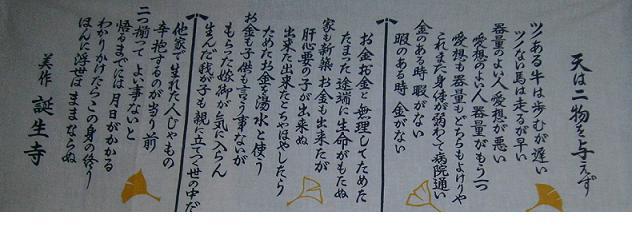 天は二物を与えず
ツノある牛は歩むが遅い
ツノない馬は走るが早い
器量のよい人愛想が悪い
愛想のよい人器量がもう一つ
愛想も器量もどちらもよけりゃ
これまた身体が弱わくて病院通い
金のある時 暇がない
暇のある時 金がない
お金お金と無理してためた
たまった途端に生命がもたぬ
家も新築 お金も出来たが
肝心要の子が出来ぬ
出来た出来たとちやほやしたら
ためたお金を湯水と使う
お金も子供も言う事ないが
もらった嫁御が気に入らん
生んだ我が子も親に立てつく世の中だ
他家で生れた人じゃもの
辛抱するのが当り前
二つ揃ってよい事ないと
悟るまでには月日がかかる
わかりかけたらこの身の終り
ほんに浮世はままならぬ
美作 誕生寺